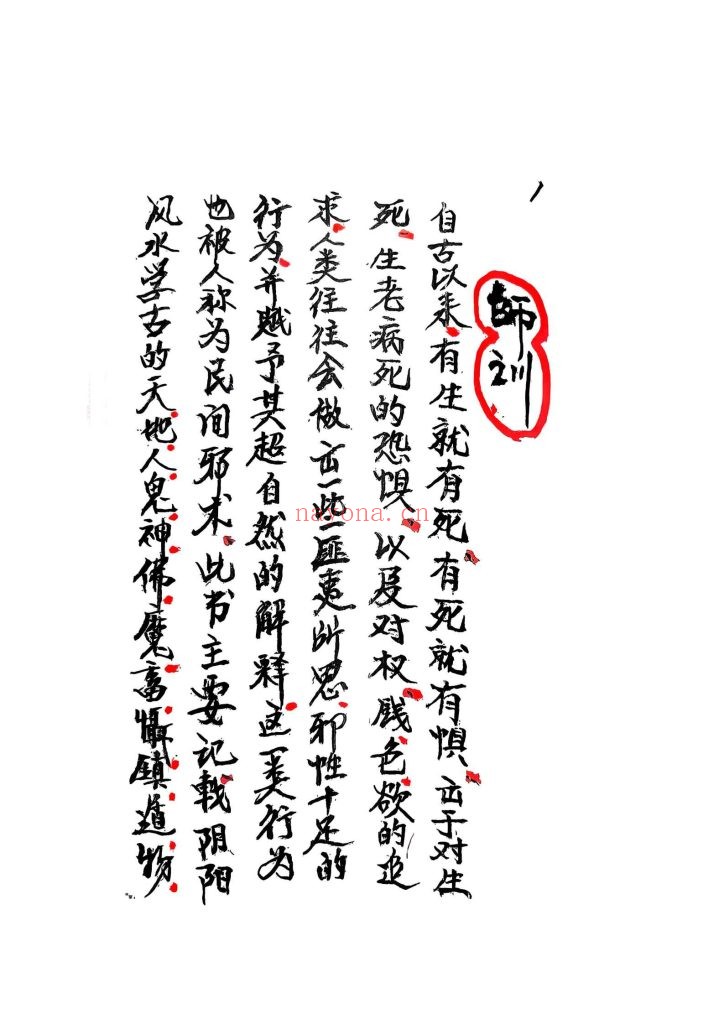 師训
自古以来.有生就有死.有死就有惧.出于对生
死.生老病死的恐惧.以及对权.戗.色.欲的追
求.人类往往会做出一些匪夷所思.邪性十足的
行为.并赋予其超自然的解释.这一类行为
也被人称为民间邪术.此书主要记载阴阳
风水学古的天.地.人.鬼.神.佛.魔.畜.慑.鎮.遁.物.
nayona.cn